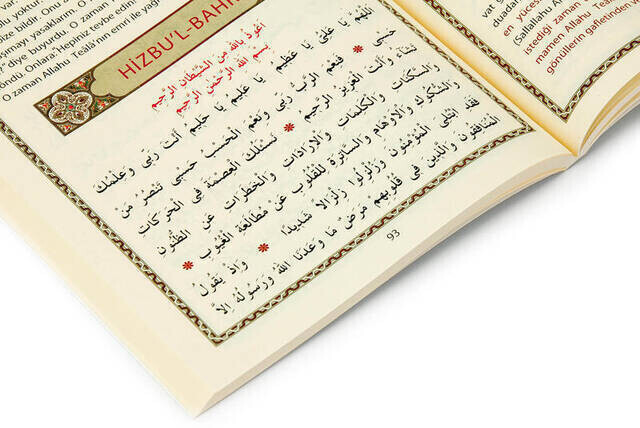 size bildir.
aşmayı yasakların. O
diye buyurdu. O zaman
Onlara: "Hepiniz tevbe edin!
O zaman Allahu Teâlâ'nın emri ile
HİZBU'L-BAHR
اَعُوذُ بِاللّٰهِ مِنَ الشَّيْطَانِ الرَّجِيمِ
بِسْمِ اللّٰهِ الرَّحْمٰنِ الرَّحِيمِ
اَللّٰهُمَّ يَا عَلِيُّ يَا عَظِيمُ يَا عَلِيمُ يَا حَلِيمُ اَنْتَ رَبِّي وَعِلْمُكَ
حَسْبِي فَنِعْمَ الرَّبُّ رَبِّي وَنِعْمَ الْحَسْبُ حَسْبِي تَنْصُرُ مَنْ
تَشَاءُ وَاَنْتَ الْعَزِيزُ الرَّحِيمُ نَسْئَلُكَ الْعِصْمَةَ فِي الْحَرَكَاتِ
وَالسَّكَنَاتِ وَالْكَلِمَاتِ وَالْاِرَادَاتِ وَالْخَطَرَاتِ عَنِ الظُّنُونِ
وَالشُّكُوكِ وَالْاَوْهَامِ السَّايِرَةِ لِلْقُلُوبِ عَنْ مُطَالَعَةِ الْغُيُوبِ
فَقَدِ ابْتُلِيَ الْمُؤْمِنُونَ وَزُلْزِلُوا زِلْزَالًا شَدِيدًا وَاِذْ يَقُولُ
الْمُنَافِقُونَ وَالَّذِينَ فِي قُلُوبِهِمْ مَرَضٌ مَا وَعَدَنَا اللّٰهُ وَرَسُولُهُ اِلَّا
93
vat
en
(Sallallahu
istediği zaman
mamen Allahu
gönüllerin gafletinden